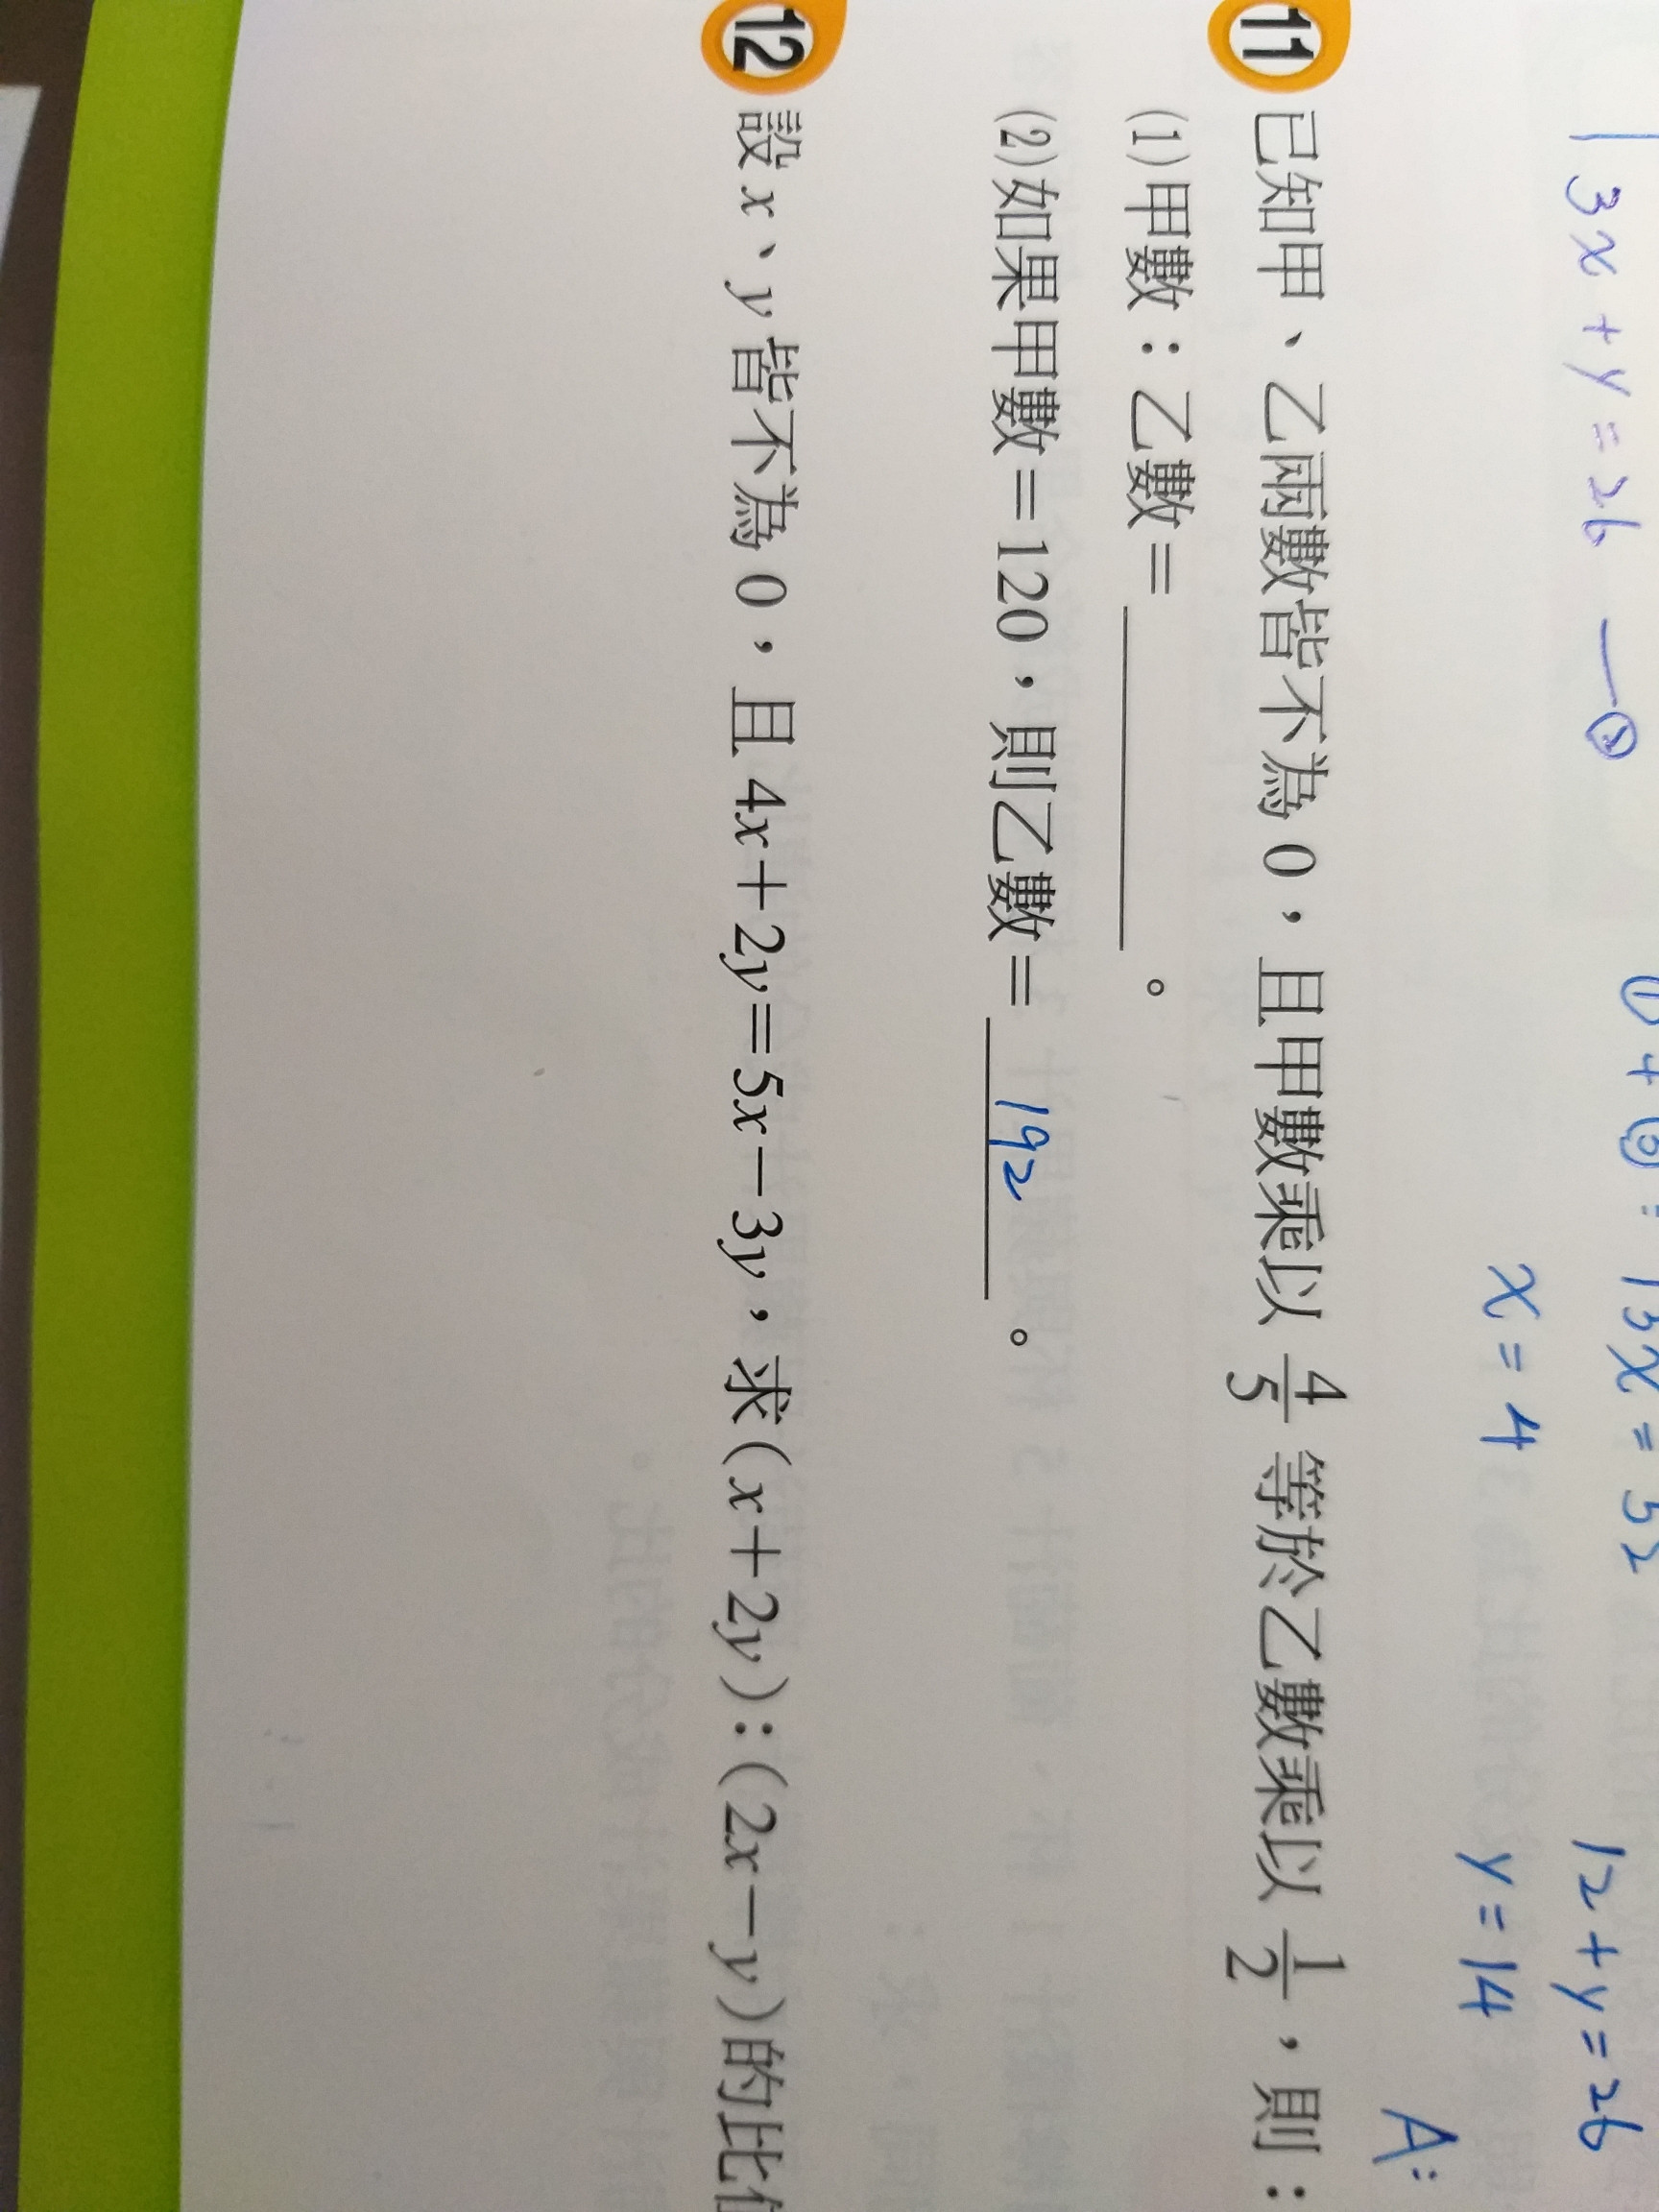 3x+y=26 —②
①+②:13x=52
x=4
12+y=26
y=14
A:
11 已知甲、乙兩數皆不為 0,且甲數乘以 4/5 等於乙數乘以 1/2,則:
(1)甲數:乙數=＿＿＿＿。
(2)如果甲數=120,則乙數= 192 。
12 設 x、y 皆不為 0,且 4x+2y=5x-3y,求(x+2y):(2x-y)的比